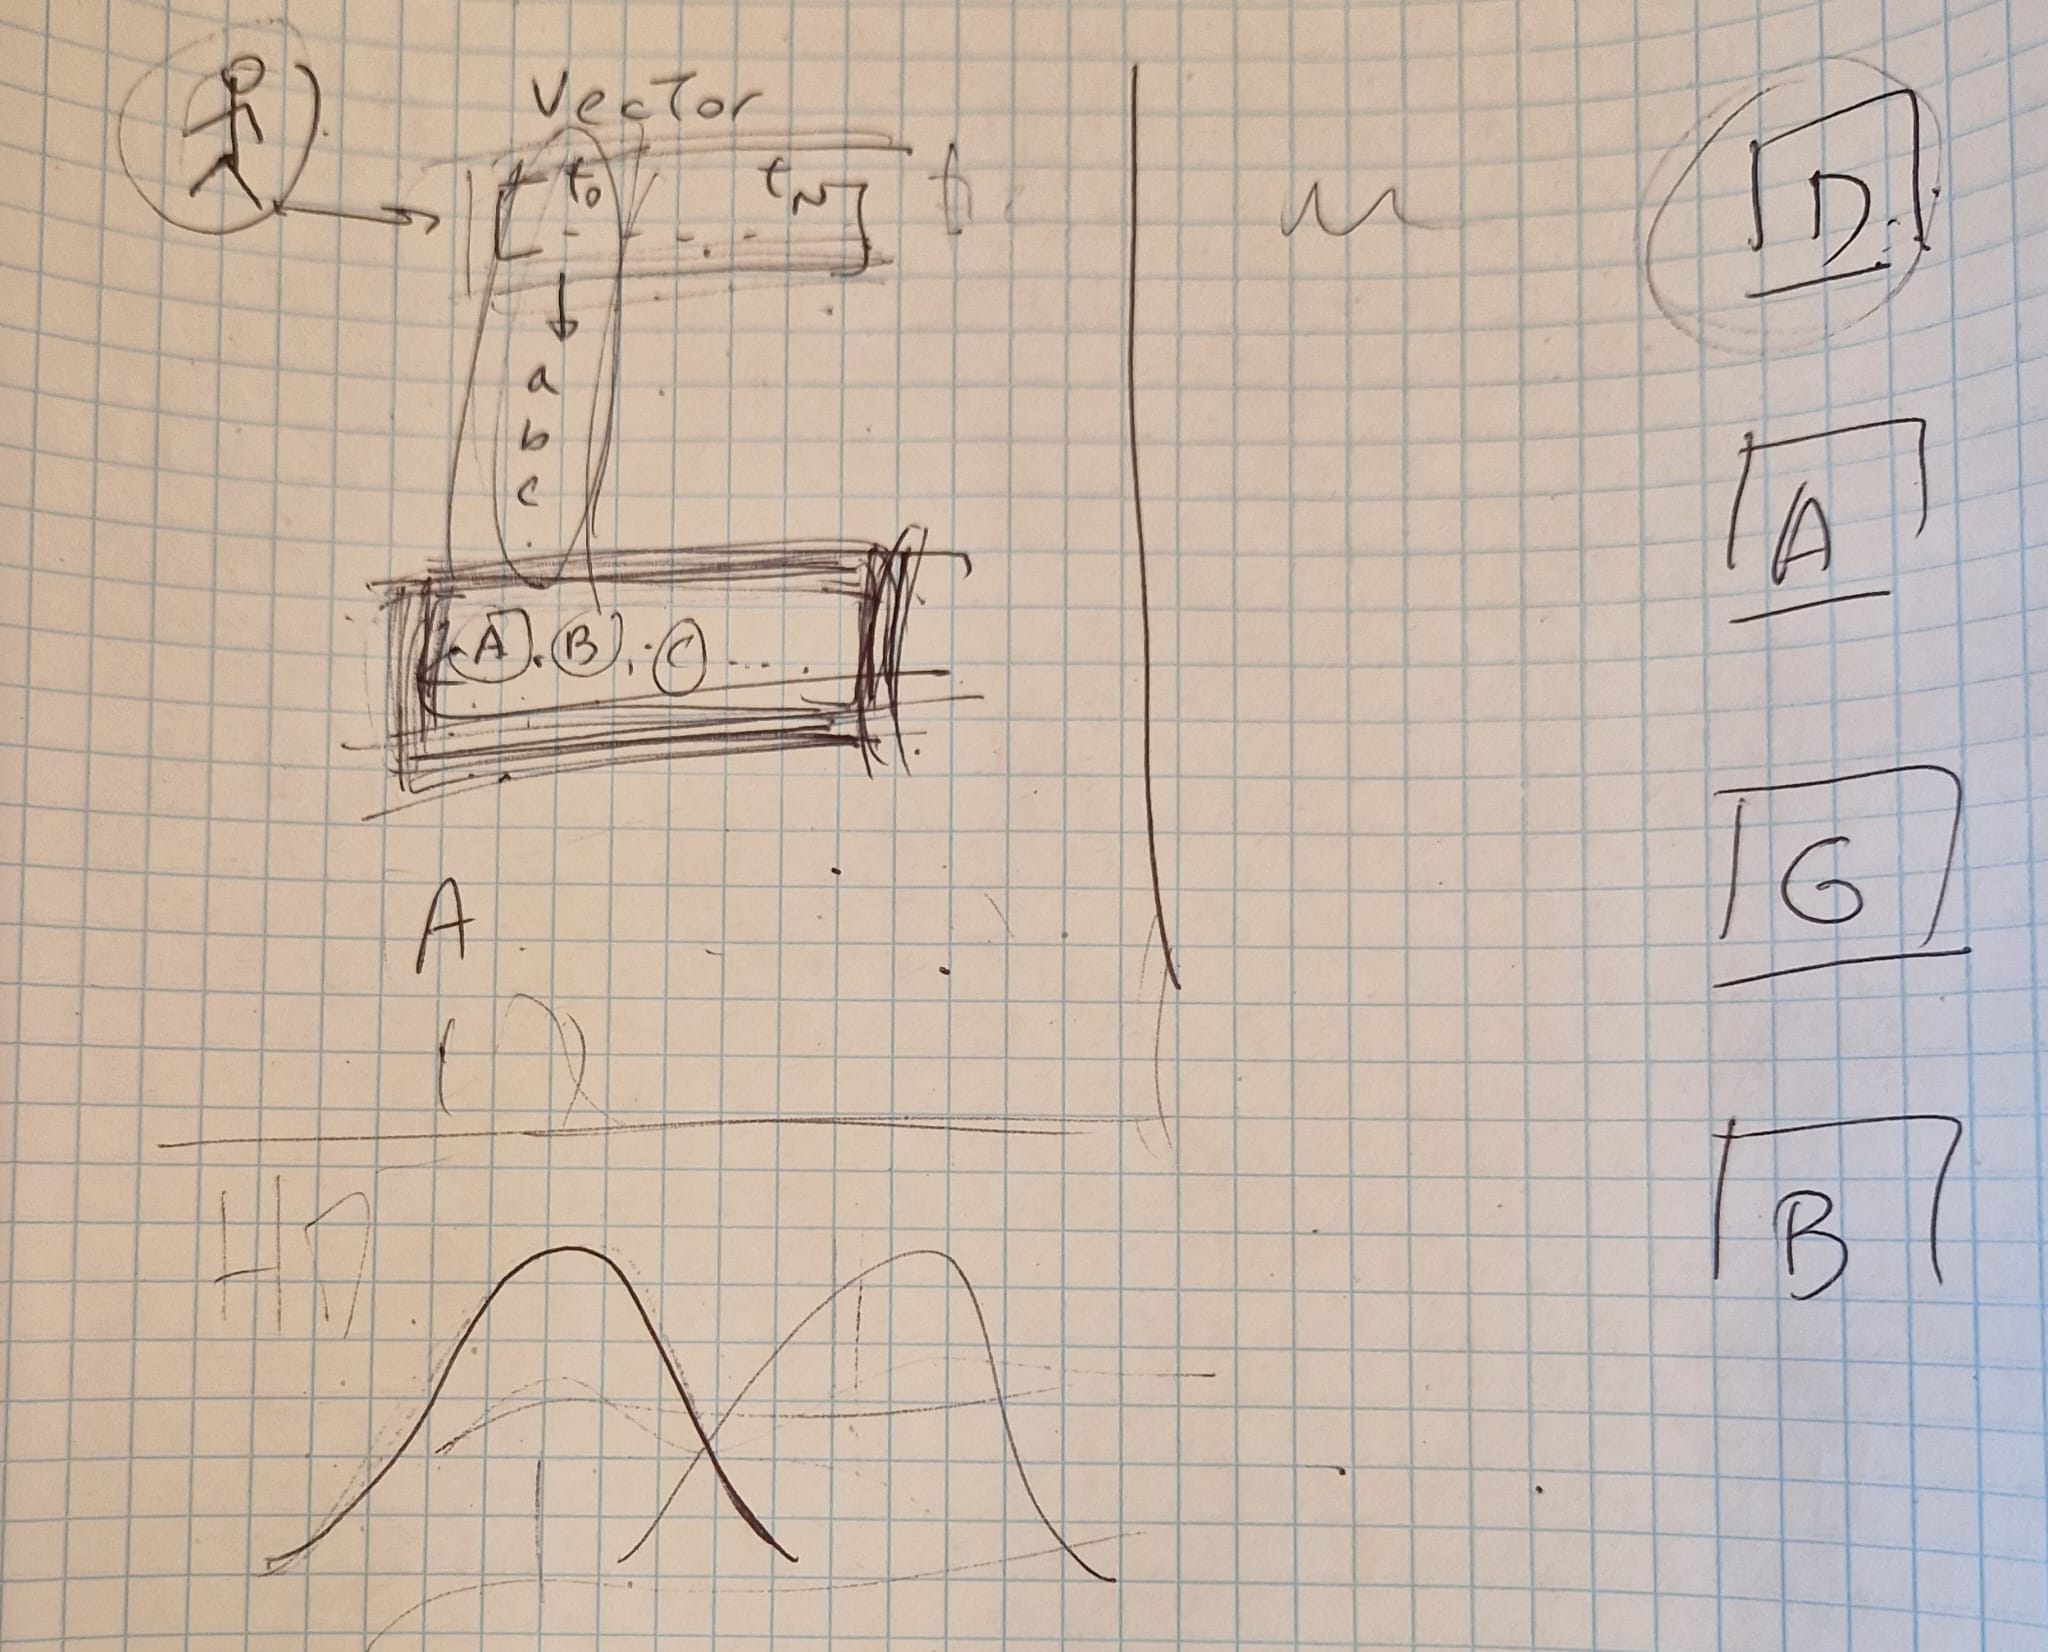 Vector
t₀ tₙ
a
b
c
A . B , C ....
A
HD
D
A
G
B